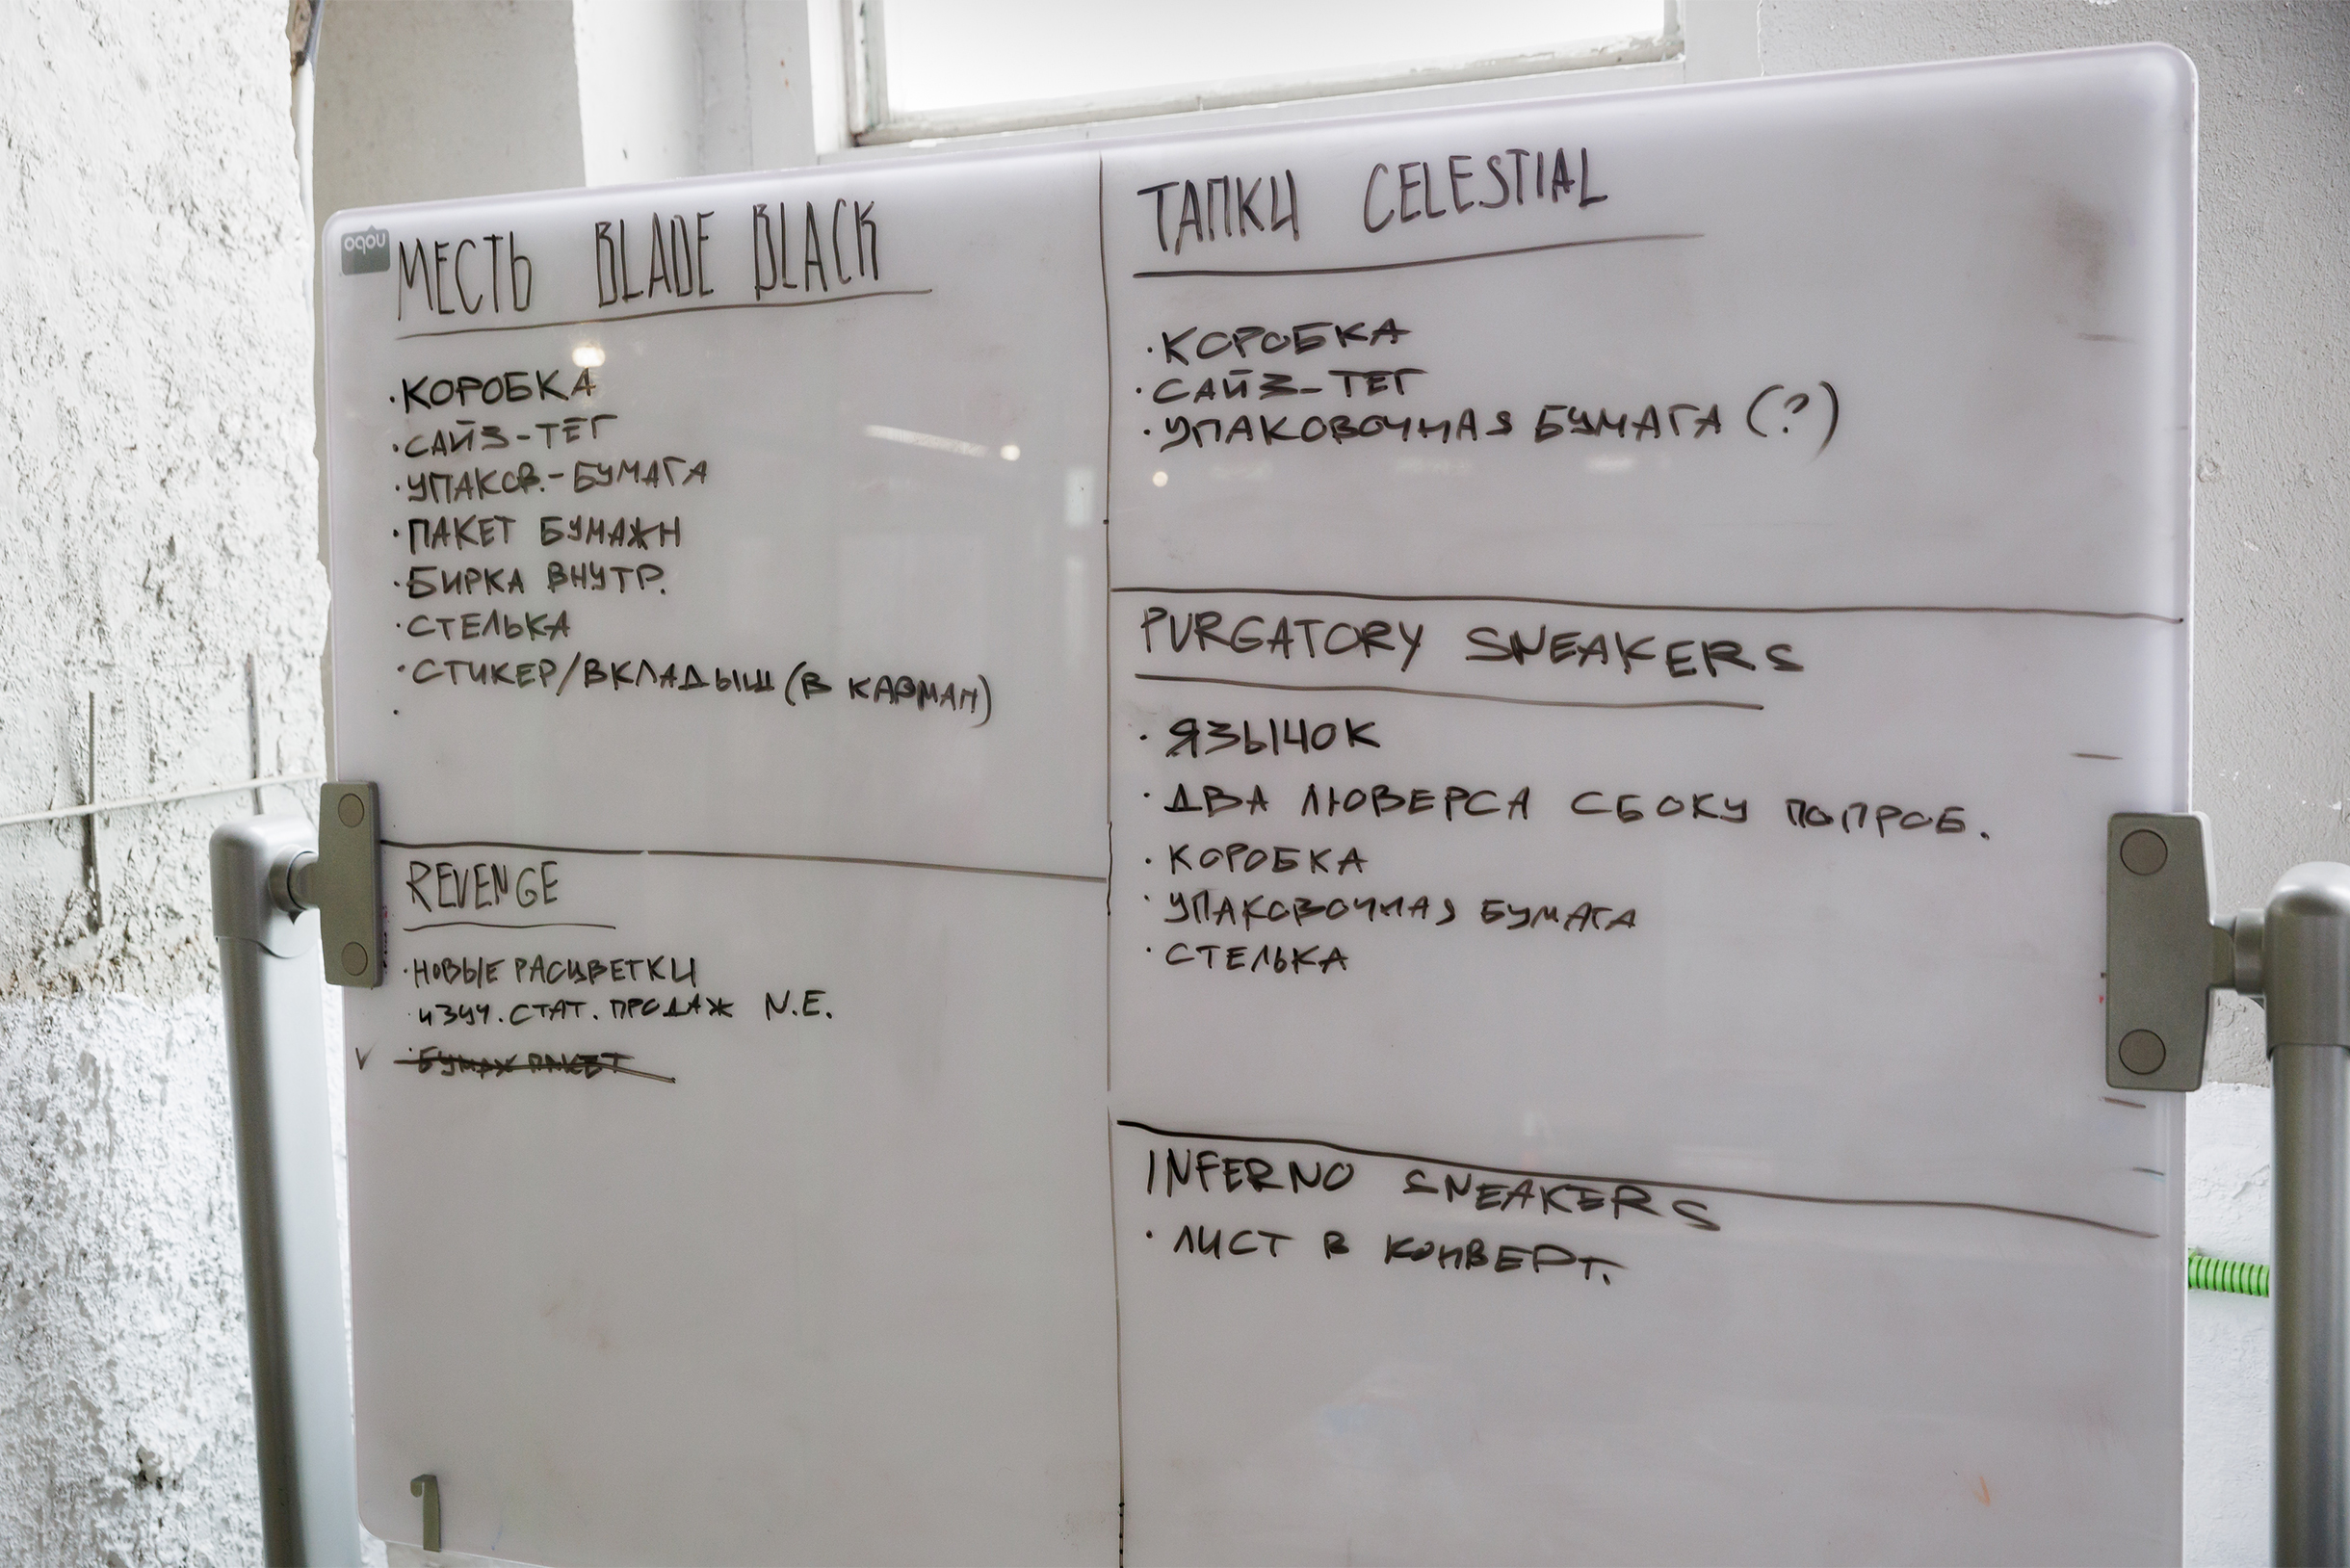 МЕСТЬ BLADE BLACK
·КОРОБКА
·САЙЗ-ТЕГ
·УПАКОВ.-БУМАГА
·ПАКЕТ БУМАЖН
·БИРКА ВНУТР.
·СТЕЛЬКА
·СТИКЕР/ВКЛАДЫШ (В КАРМАН)
·
REVENGE
·НОВЫЕ РАСЦВЕТКИ
·ИЗУЧ. СТАТ. ПРОДАЖ N.E.
V ·БУМАЖ ПАКЕТ
ТАПКИ CELESTIAL
·КОРОБКА
·САЙЗ-ТЕГ
·УПАКОВОЧНАЯ БУМАГА (?)
PURGATORY SNEAKERS
· ЯЗЫЧОК
· ДВА ЛЮВЕРСА СБОКУ ПОПРОБ.
· КОРОБКА
· УПАКОВОЧНАЯ БУМАГА
· СТЕЛЬКА
INFERNO SNEAKERS
· ЛИСТ В КОНВЕРТ.